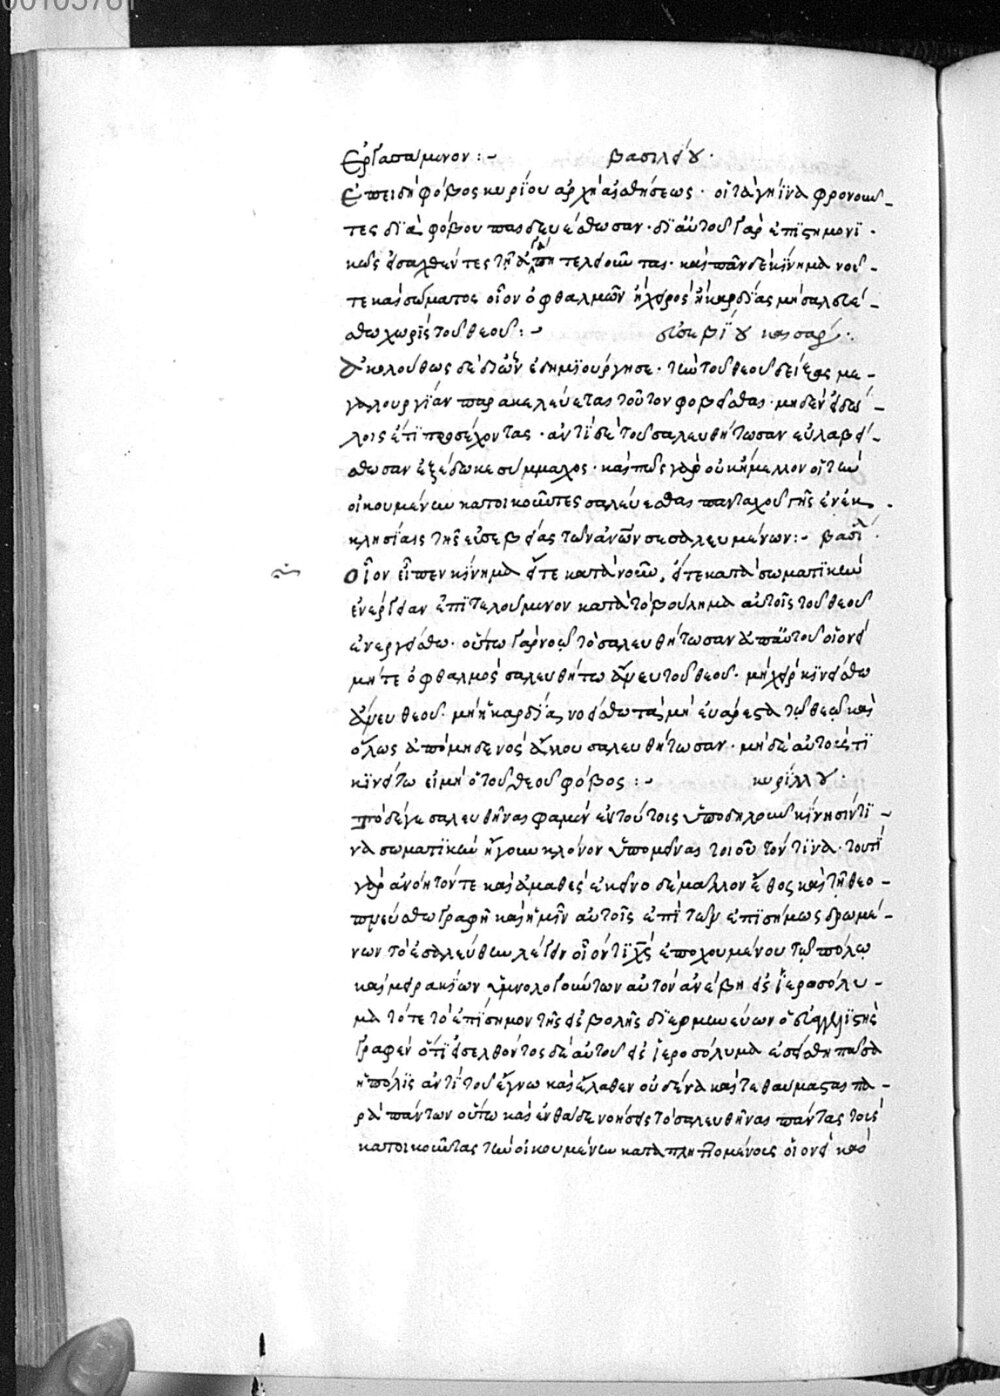 00105761
ἐργασάμενον :~ βασιλείου ·
Ἐπειδὴ φόβος κυρίου ἀρχὴ αἰσθήσεως · οἱ τὰ γήϊνα φρονοῦν_
τες διὰ φόβου παιδευέσθωσαν · δι αὐτοῦ γὰρ ἐπιστημονι ·
κῶς εἰσαχθέντες τῇ ἀγάπῃ τελειοῦνται · καὶ πᾶν δὲ κίνημα νοῦ _
τε καὶ σώματος οἷον ὀφθαλμῶν ἢ χειρὸς ἢ καρδίας μὴ σαλευέ _
σθω χωρὶς τοῦ θεοῦ :~ εὐσεβίου καισαρ ·
Ἀκολούθως δὲ δι ὧν ἐδημιούργησε · τὴν τοῦ θεοῦ δείξας με _
γαλουργίαν παρακελεύεται τοῦτον φοβεῖσθαι · μηδὲν εἰδώ _
λοις ἔτι προσέχοντας · ἀντὶ δὲ τοῦ σαλευθήτωσαν εὐλαβεί _
σθωσαν ἐξέδωκε σύμμαχος · καὶ πῶς γὰρ οὐκ ἤμελλον οἱ τὴν
οἰκουμένην κατοικοῦντες σαλεύεσθαι πανταχοῦ γῆς ἐν ἐκ ·
κλησίαις τῆς εὐσεβείας τῶν ἀνῶν σεσαλευμένων :~ βασιλ ·
Οἷον εἶπεν κίνημα εἴτε κατὰ νοῦν, εἴτε κατὰ σωματικὴν
ἐνέργειαν ἐπιτελούμενον κατὰ τὸ βούλημα αὐτοῖς τοῦ θεοῦ
ἐνεργείσθω · οὕτω γὰρ νοεῖ τὸ σαλευθήτωσαν ἀπ αὐτοῦ οἱονεὶ
μήτε ὀφθαλμὸς σαλευθήτω ἄνευ τοῦ θεοῦ · μὴ χεὶρ κινείσθω
ἄνευ θεοῦ · μὴ ἡ καρδία νοείσθω τὰ μὴ εὐάρεστα τῷ θεῷ καὶ
ὅλως ἀπὸ μηδενὸς ἄλλου σαλευθήτωσαν · μηδὲ αὐτούς τι
κινείτω εἰ μὴ ὁ τοῦ θεοῦ φόβος :~ κυρίλλου ·
Τὸ δέ γε σαλευθῆναι φαμὲν ἐν τούτοις ὑποδηλοῦν κίνησιν τι _
νὰ σωματικὴν ἤγουν κλόνον ὑπομεῖναι τοιοῦτον τινα · τουτὶ
γὰρ ἀνόητόν τε καὶ ἀμαθές ἐκεῖνο δὲ μᾶλλον ἔθος καὶ τῇ θεο _
πνεύστω γραφῇ καὶ ἡμῖν αὐτοῖς ἐπὶ τῶν ἐπισήμως δρωμέ _
νων τὸ ἐσαλεύθην λέγειν οἷόν τι χς ἐποχουμένου τῷ πώλῳ
καὶ μειρακίων ὑμνολογούντων αὐτὸν ἀνέβη εἰς ἱερασόλυ _
μα τότε τὸ ἐπίσημον τῆς εἰσβολῆς διερμηνεύων ὁ εὐαγγελιστὴς
γράφει ὅτι εἰσελθόντος δὲ αὐτοῦ εἰς ἱεροσόλυμα ἐσείσθη πᾶσα
ἡ πόλις ἀντὶ τοῦ ἔγνω καὶ ἔλαθεν οὐδένα καὶ τεθαύμασται πα _
ρὰ πάντων οὕτω καὶ ἐνθάδε νοήσεις τὸ σαλευθῆναι πάντας τοὺς
κατοικοῦντας τὴν οἰκουμένην καταπληττομένους οἱονεὶ καὶ